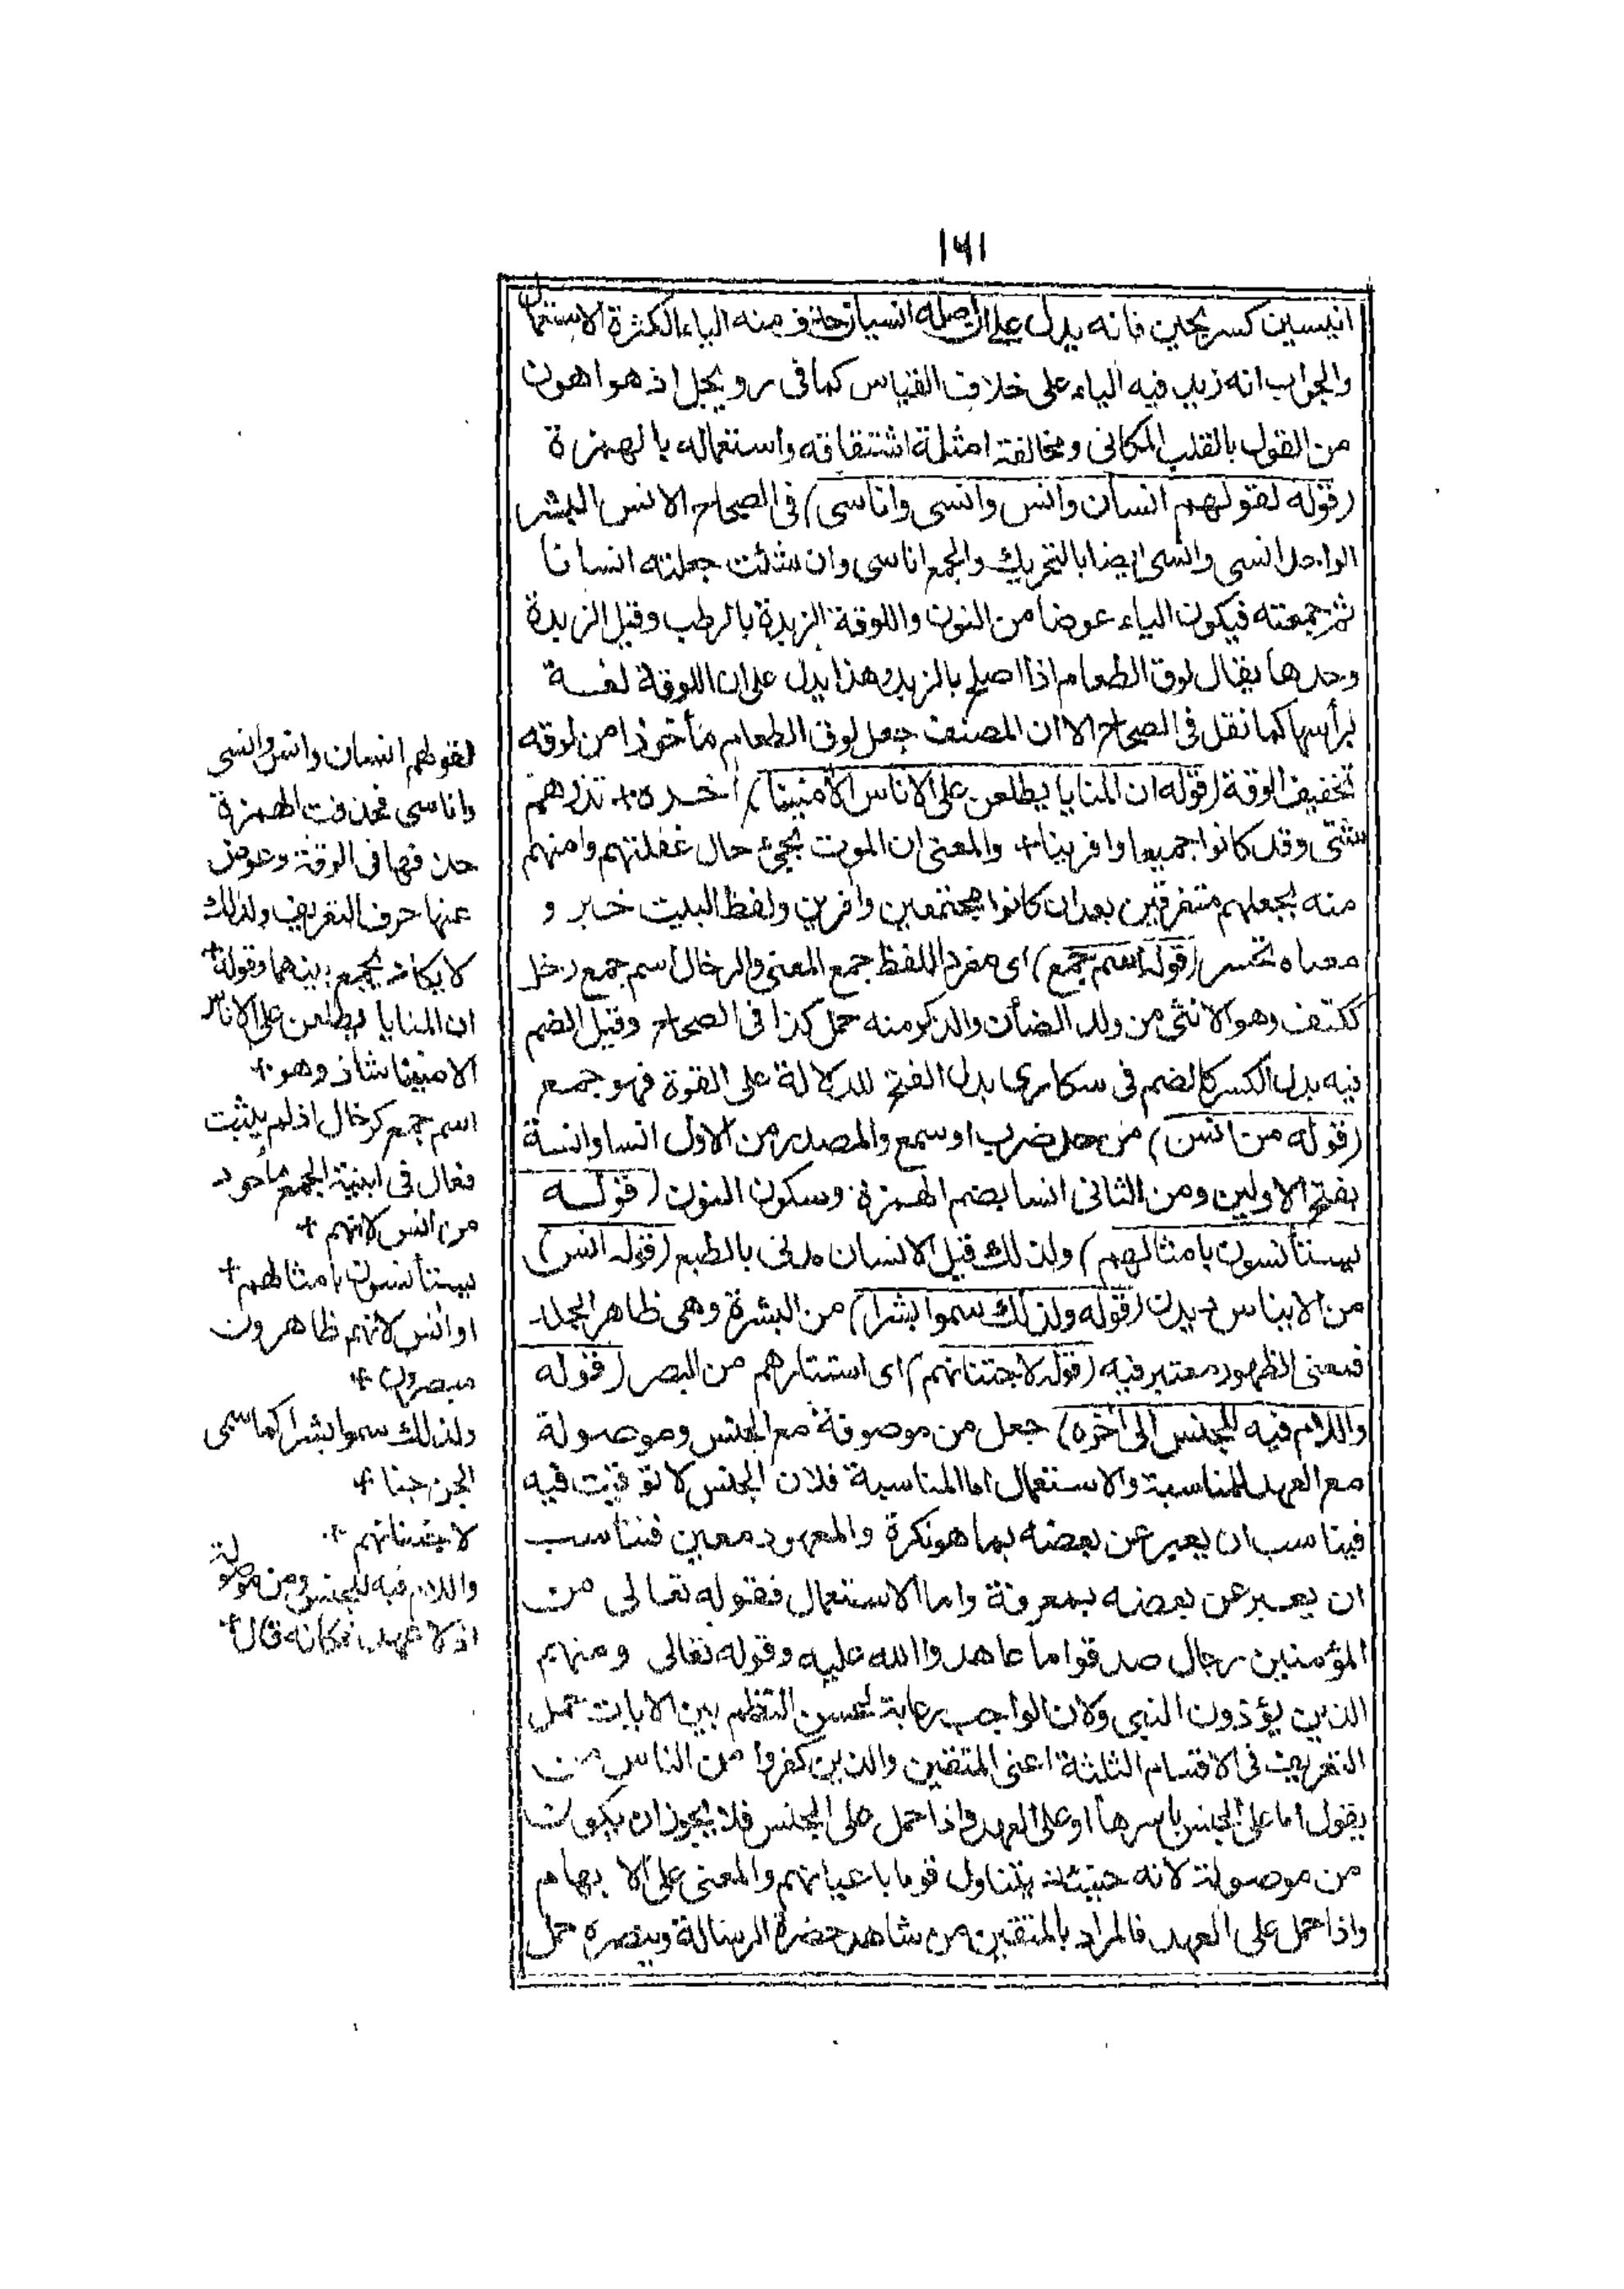 ١٦١
انيسين كسريحين فانه يدل على ان اصله انسيان حذف منه الياء لكثرة الاستعمال
والجواب انه زيد فيه الياء على خلاف القياس كما فى رويجل اذ هو اهون
من القول بالقلب المكانى ومخالفته امثلة اشتقاقه واستعماله بالهمزة
(قوله لقولهم انسان وانس وانسى واناسى) فى الصحاح الانس البشر
الواحد انسى وانسى ايضا بالتحريك والجمع اناسى وان شئت جعلته انسانا
ثم جمعته فيكون الياء عوضا من النون واللوقة الزبدة بالرطب وقيل الزبدة
وحدها يقال لوق الطعام اذا اصلح بالزبد وهذا يدل على ان اللوقة لغة
برأسها كما نقل فى الصحاح الا ان المصنف جعل لوق الطعام مأخوذا من لوقه
تخفيف الوقة (قوله ان المنايا يطلعن على الاناس الآمنينا) آخره + تذرهم
شتى وقد كانوا جميعا وافرينا + والمعنى ان الموت يجئ حال غفلتهم وامنهم
منه يجعلهم متفرقين بعد ان كانوا مجتمعين وافرين ولفظ البيت خبر و
معناه تحسر (قوله اسم جمع) اى مفرد اللفظ جمع المعنى والرخال اسم جمع رخل
ككتف وهو الانثى من ولد الضأن والذكر منه حمل كذا فى الصحاح وقيل الضم
فيه بدل الكسر كالضم فى سكارى بدل الفتح للدلالة على القوة فهو جمع
(قوله من انس) من حد ضرب او سمع والمصدر من الاول انسا وانسة
بفتح الاولين ومن الثانى انسا بضم الهمزة وسكون النون (قوله
يستأنسون بامثالهم) ولذلك قيل الانسان مدنى بالطبع (قوله آنس)
من الايناس ديدن (قوله ولذلك سموا بشرا) من البشرة وهى ظاهر الجلد
فمعنى الظهور معتبر فيه (قوله لاجتنانهم) اى استتارهم من البصر (قوله
واللام فيه للجنس الى آخره) جعل من موصوفة مع الجنس وموصولة
مع العهد للمناسبة والاستعمال اما المناسبة فلان الجنس لا توقيت فيه
فيناسب ان يعبر عن بعضه بما هو نكرة والمعهود معين فناسب
ان يعبر عن بعضه بمعرفة واما الاستعمال فقوله تعالى من
المؤمنين رجال صدقوا ما عاهدوا الله عليه وقوله تعالى ومنهم
الذين يؤذون النبى ولان الواجب رعاية لحسن النظم بين الآيات حمل
التعريف فى الاقسام الثلثة اعنى المتقين والذين كفروا من الناس من
يقول اما على الجنس باسرها او على العهد واذا حمل على الجنس فلا يجوز ان يكون
من موصولة لانه حينئذ يتناول قوما باعيانهم والمعنى على الابهام
واذا حمل على العهد فالمراد بالمتقين من شاهد حضرة الرسالة وينصره حمل
لقولهم انسان وانس وانسى
واناسى فحذفت الهمزة
حذفها فى الوقة وعوض
عنها حرف التعريف ولذلك
لا يكاد يجمع بينهما وقوله +
ان المنايا يطلعن على الاناس
الامنينا شاذ وهو +
اسم جمع كرخال اذ لم يثبت
فعال فى ابنية الجمع مأخوذ
من انس لانهم +
يستأنسون بامثالهم +
او آنس لانهم ظاهرون
مبصرون +
ولذلك سموا بشرا كما سمى
الجن جنا +
لاجتنانهم +
واللام فيه للجنس ومن موصوفة
اذ لا عهد فكانه قال +